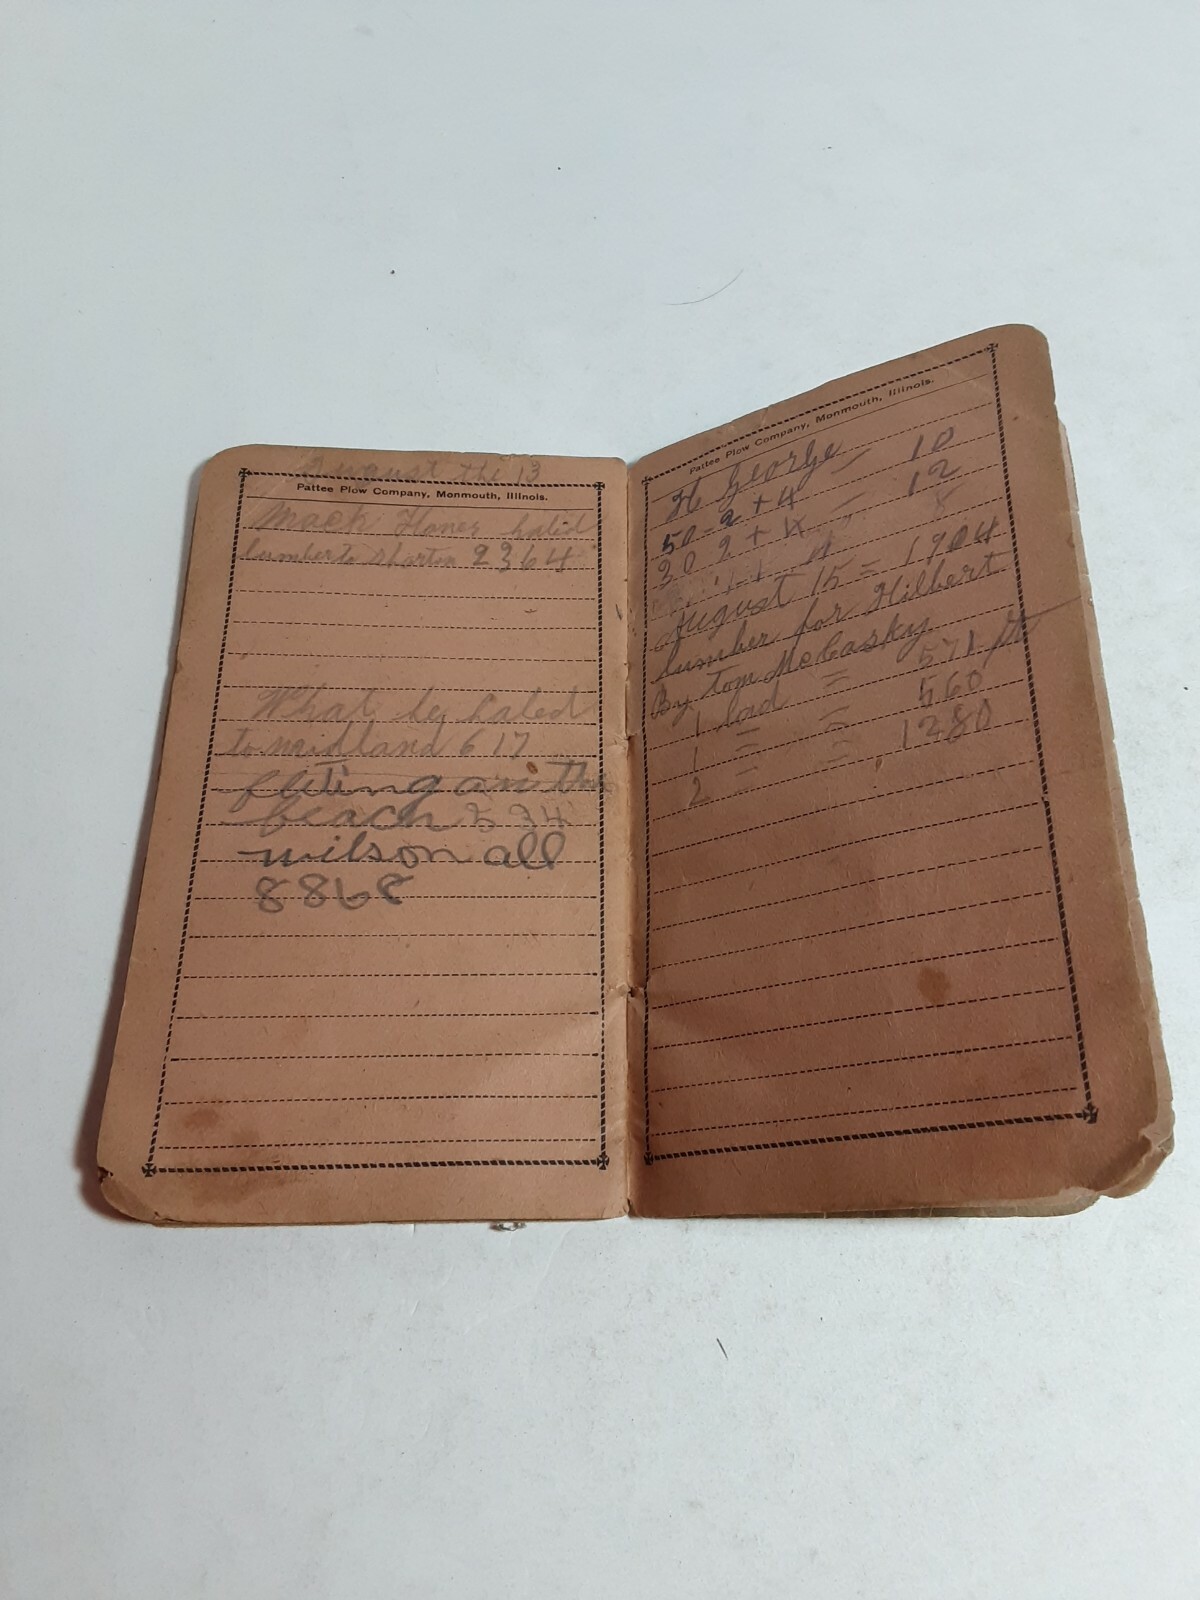 August the 13
Pattee Plow Company, Monmouth, Illinois.
Mack haled
lumber to 2364
What he haled
to midland 617
the
beach 234
wilson all
8868
Pattee Plow Company, Monmouth, Illinois.
H George
50 2 + 4 = 10
30 2 + 4 = 12
4
August 15 = 1904
lumber for Hilbert
By tom McCasky
1 lod = 571 ft
1 = = 560
2 = = 1280